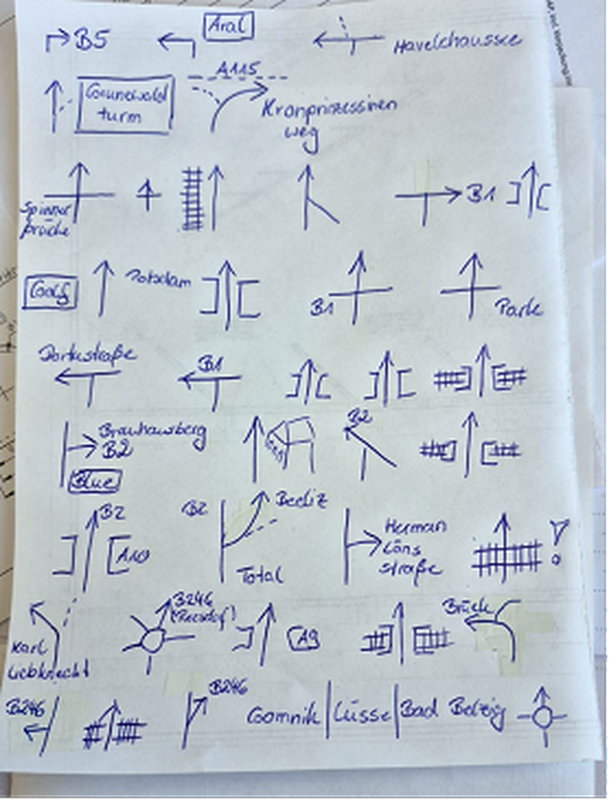 B5 Aral Havelchaussee
A115
Grunewald
turm
Kronprinzessinnen
weg
Spinner
brücke B1
Golf Potsdam B1 Park
Parkstraße B1
Brauhausberg
B2 B2
Blue
B2 A10 B2 Beeliz Total
Herman
Löns
straße !
Karl
Liebknecht B246 A9 Brück
B246 B246 Gomnik Lüsse Bad Belzig